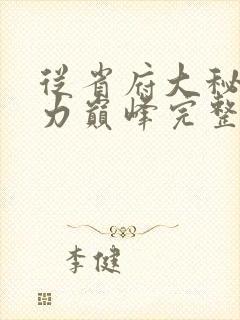 从省府大秘
力巅峰完整
李健